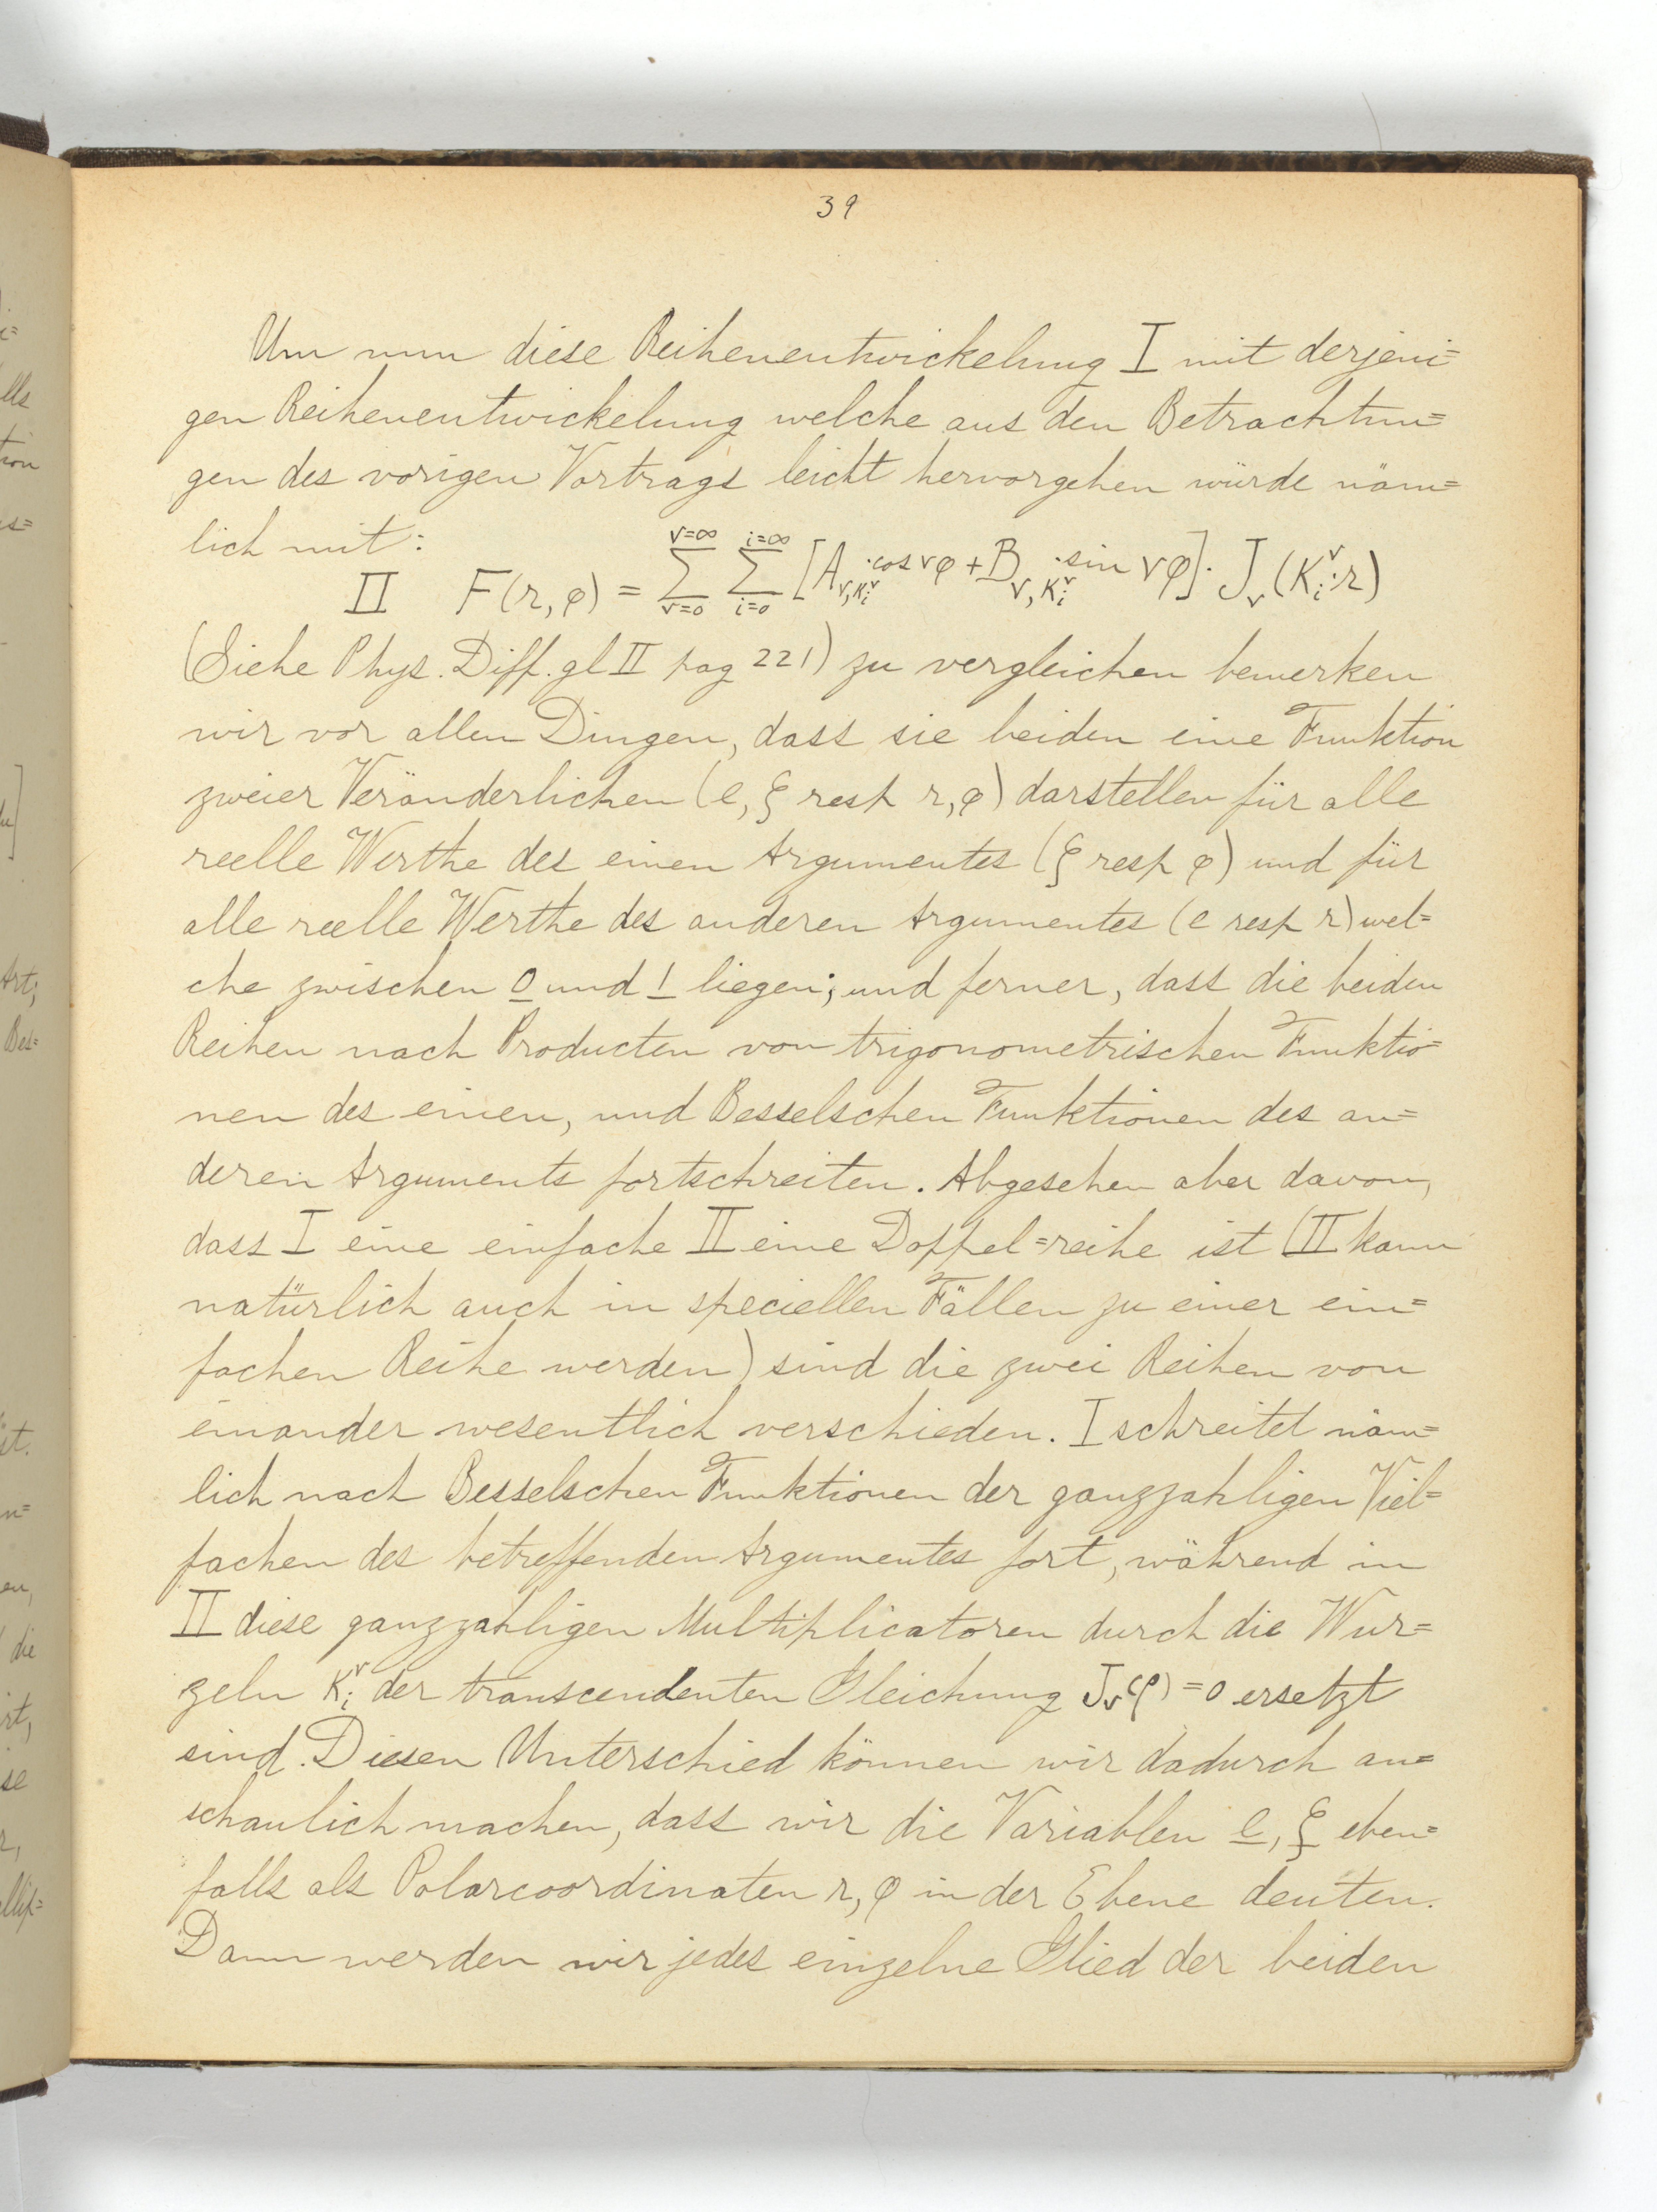 39
Um nun diese Reihenentwickelung I mit derjeni=
gen Reihenentwickelung welche aus den Betrachtun=
gen des vorigen Vortrags leicht hervorgehen würde näm=
lich mit:
II F(r, φ) = \sum_{ν=0}^{ν=∞} \sum_{i=0}^{i=∞} [A_{ν,K_i^ν} · cos νφ + B_{ν,K_i^ν} · sin νφ] · J_ν(K_i^ν · r)
(Siehe Phys. Diff. gl II pag 221) zu vergleichen bemerken
wir vor allen Dingen, dass sie beiden eine Funktion
zweier Veränderlichen (e, ξ resp r, φ) darstellen für alle
reelle Werthe des einen Argumentes (ξ resp φ) und für
alle reelle Werthe des anderen Argumentes (e resp r) wel=
che zwischen 0 und 1 liegen; und ferner, dass die beiden
Reihen nach Producten von trigonometrischen Funktio=
nen des einen, und Besselschen Funktionen des an=
deren Arguments fortschreiten. Abgesehen aber davon,
dass I eine einfache II eine Doppel=reihe ist (II kann
natürlich auch in speciellen Fällen zu einer ein=
fachen Reihe werden) sind die zwei Reihen von
einander wesentlich verschieden. I schreitet näm=
lich nach Besselschen Funktionen der ganzzahligen Viel=
fachen des betreffenden Argumentes fort, während in
II diese ganzzahligen Multiplicatoren durch die Wur=
zeln K_i^ν der transcendenten Gleichung J_ν(ρ) = 0 ersetzt
sind. Diesen Unterschied können wir dadurch an=
schaulich machen, dass wir die Variablen e, ξ eben=
falls als Polarcoordinaten r, φ in der Ebene deuten.
Dann werden wir jedes einzelne Glied der beiden